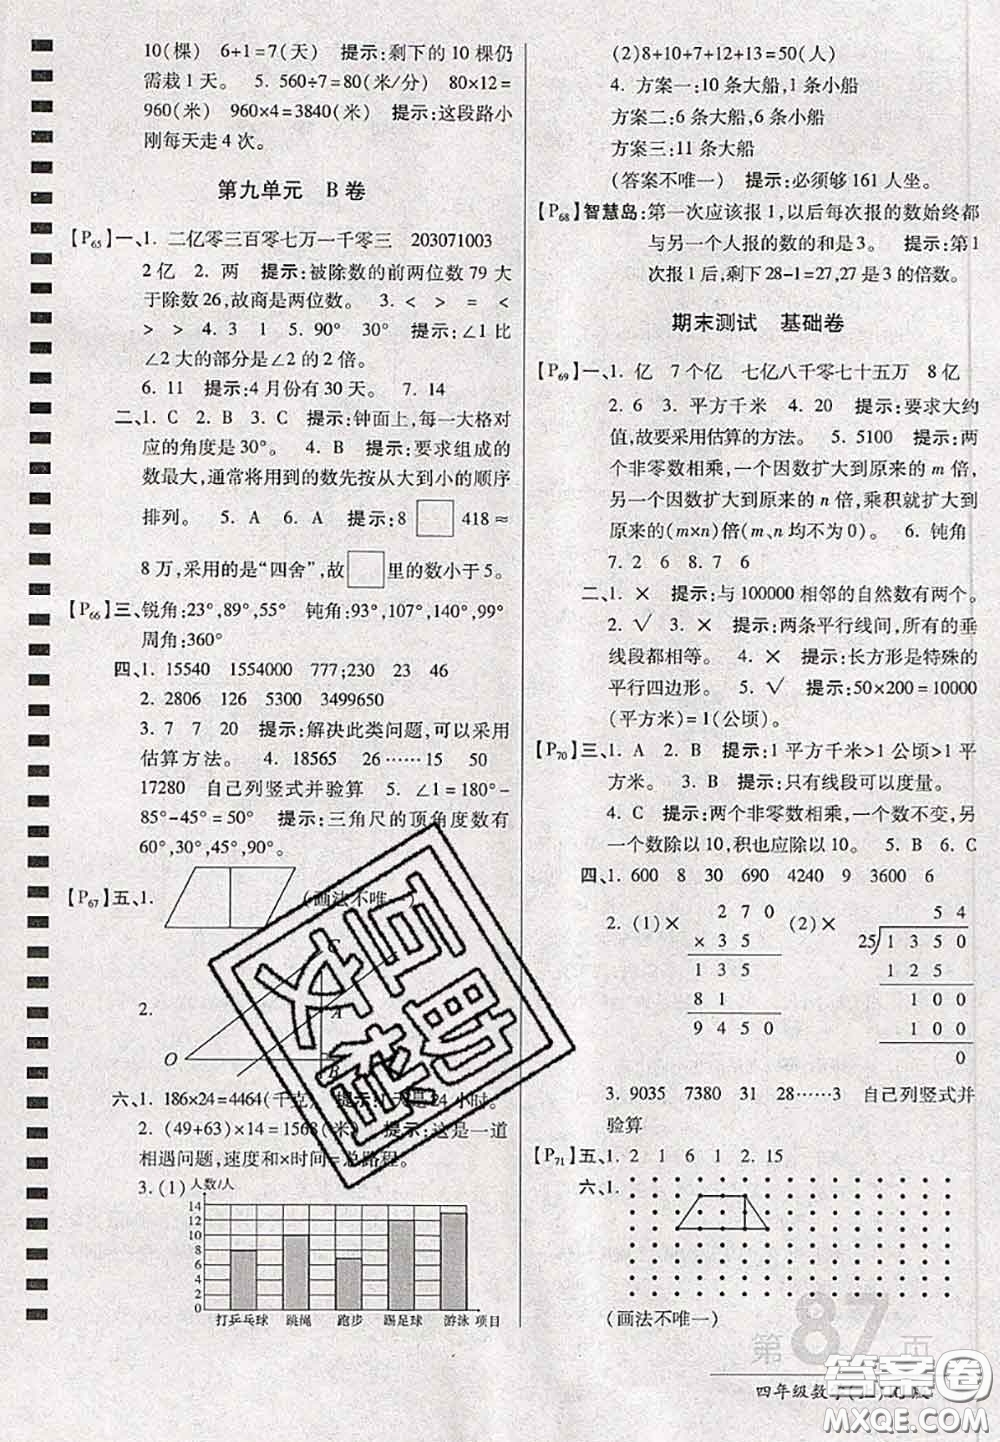 10(棵)　6+1=7(天)　提示:剩下的 10 棵仍
需栽 1 天。　5. 560÷7=80(米/分)　80×12=
960(米)　960×4=3840(米)　提示:这段路小
刚每天走 4 次。
第九单元　B卷
【P65】一、1. 二亿零三百零七万一千零三　203071003
2亿　2. 两　提示:被除数的前两位数 79 大
于除数 26,故商是两位数。　3. <　>　=　<
>　>　4. 3　1　5. 90°　30°　提示:∠1 比
∠2 大的部分是∠2 的 2 倍。
6. 11　提示:4 月份有 30 天。　7. 14
二、1. C　2. B　3. C　提示:钟面上,每一大格对
应的角度是 30°。　4. B　提示:要求组成的
数最大,通常将用到的数先按从大到小的顺序
排列。　5. A　6. A　提示:8□418≈
8 万,采用的是“四舍”,故□里的数小于 5。
【P66】三、锐角:23°,89°,55°　钝角:93°,107°,140°,97°
周角:360°
四、1. 15540　1554000　777;230　23　46
2. 2806　126　5300　3499650
3. 7　7　20　提示:解决此类问题,可以采用
估算方法。　4. 18565　26……15　50
17280　自己列竖式并验算　5. ∠1=180°-
85°-45°=50°　提示:三角尺的顶角度数有
60°,30°,45°,90°。
【P67】五、1.　(画法不唯一)
2.
O
六、1. 186×24=4464(千克)　提示:1 天是 24 小时。
2. (49+63)×14=1568(米)　提示:这是一道
相遇问题,速度和×时间=总路程。
3. (1) 人数/人
14
12
10
8
6
4
2
0
打乒乓球　跳绳　跑步　踢足球　游泳　项目
(2)8+10+7+12+13=50(人)
4. 方案一:10 条大船,1 条小船
方案二:6 条大船,6 条小船
方案三:11 条大船
(答案不唯一)　提示:必须够 161 人坐。
【P68】智慧岛:第一次应该报 1,以后每次报的数始终都
与另一个人报的数的和是 3。　提示:第 1
次报 1 后,剩下 28-1=27,27 是 3 的倍数。
期末测试　基础卷
【P69】一、1. 亿　7 个亿　七亿八千零七十五万　8亿
2. 6　3. 平方千米　4. 20　提示:要求大约
值,故要采用估算的方法。　5. 5100　提示:两
个非零数相乘,一个因数扩大到原来的 m 倍,
另一个因数扩大到原来的 n 倍,乘积就扩大到
原来的(m×n)倍(m、n 均不为 0)。　6. 钝角
7. 2　6　8. 7　6
二、1. ×　提示:与 100000 相邻的自然数有两个。
2. √　3. ×　提示:两条平行线间,所有的垂
线段都相等。　4. ×　提示:长方形是特殊的
平行四边形。　5. √　提示:50×200=10000
(平方米)=1(公顷)。
【P70】三、1. A　2. B　提示:1 平方千米>1 公顷>1 平
方米。　3. B　提示:只有线段可以度量。
4. C　提示:两个非零数相乘,一个数不变,另
一个数除以 10,积也应除以 10。　5. B　6. C
四、1. 600　8　30　690　4240　9　3600　6
2. (1) ×　270　(2) ×　54
× 35　25)1350
135　125
81　100
9450　100
0
3. 9035　7380　31　28……3　自己列竖式并
验算
【P71】五、1. 2　1　6　1　2. 15
六、1.
(画法不唯一)
第87页
四年级数学
互助文档
答案圈
MXQE.COM